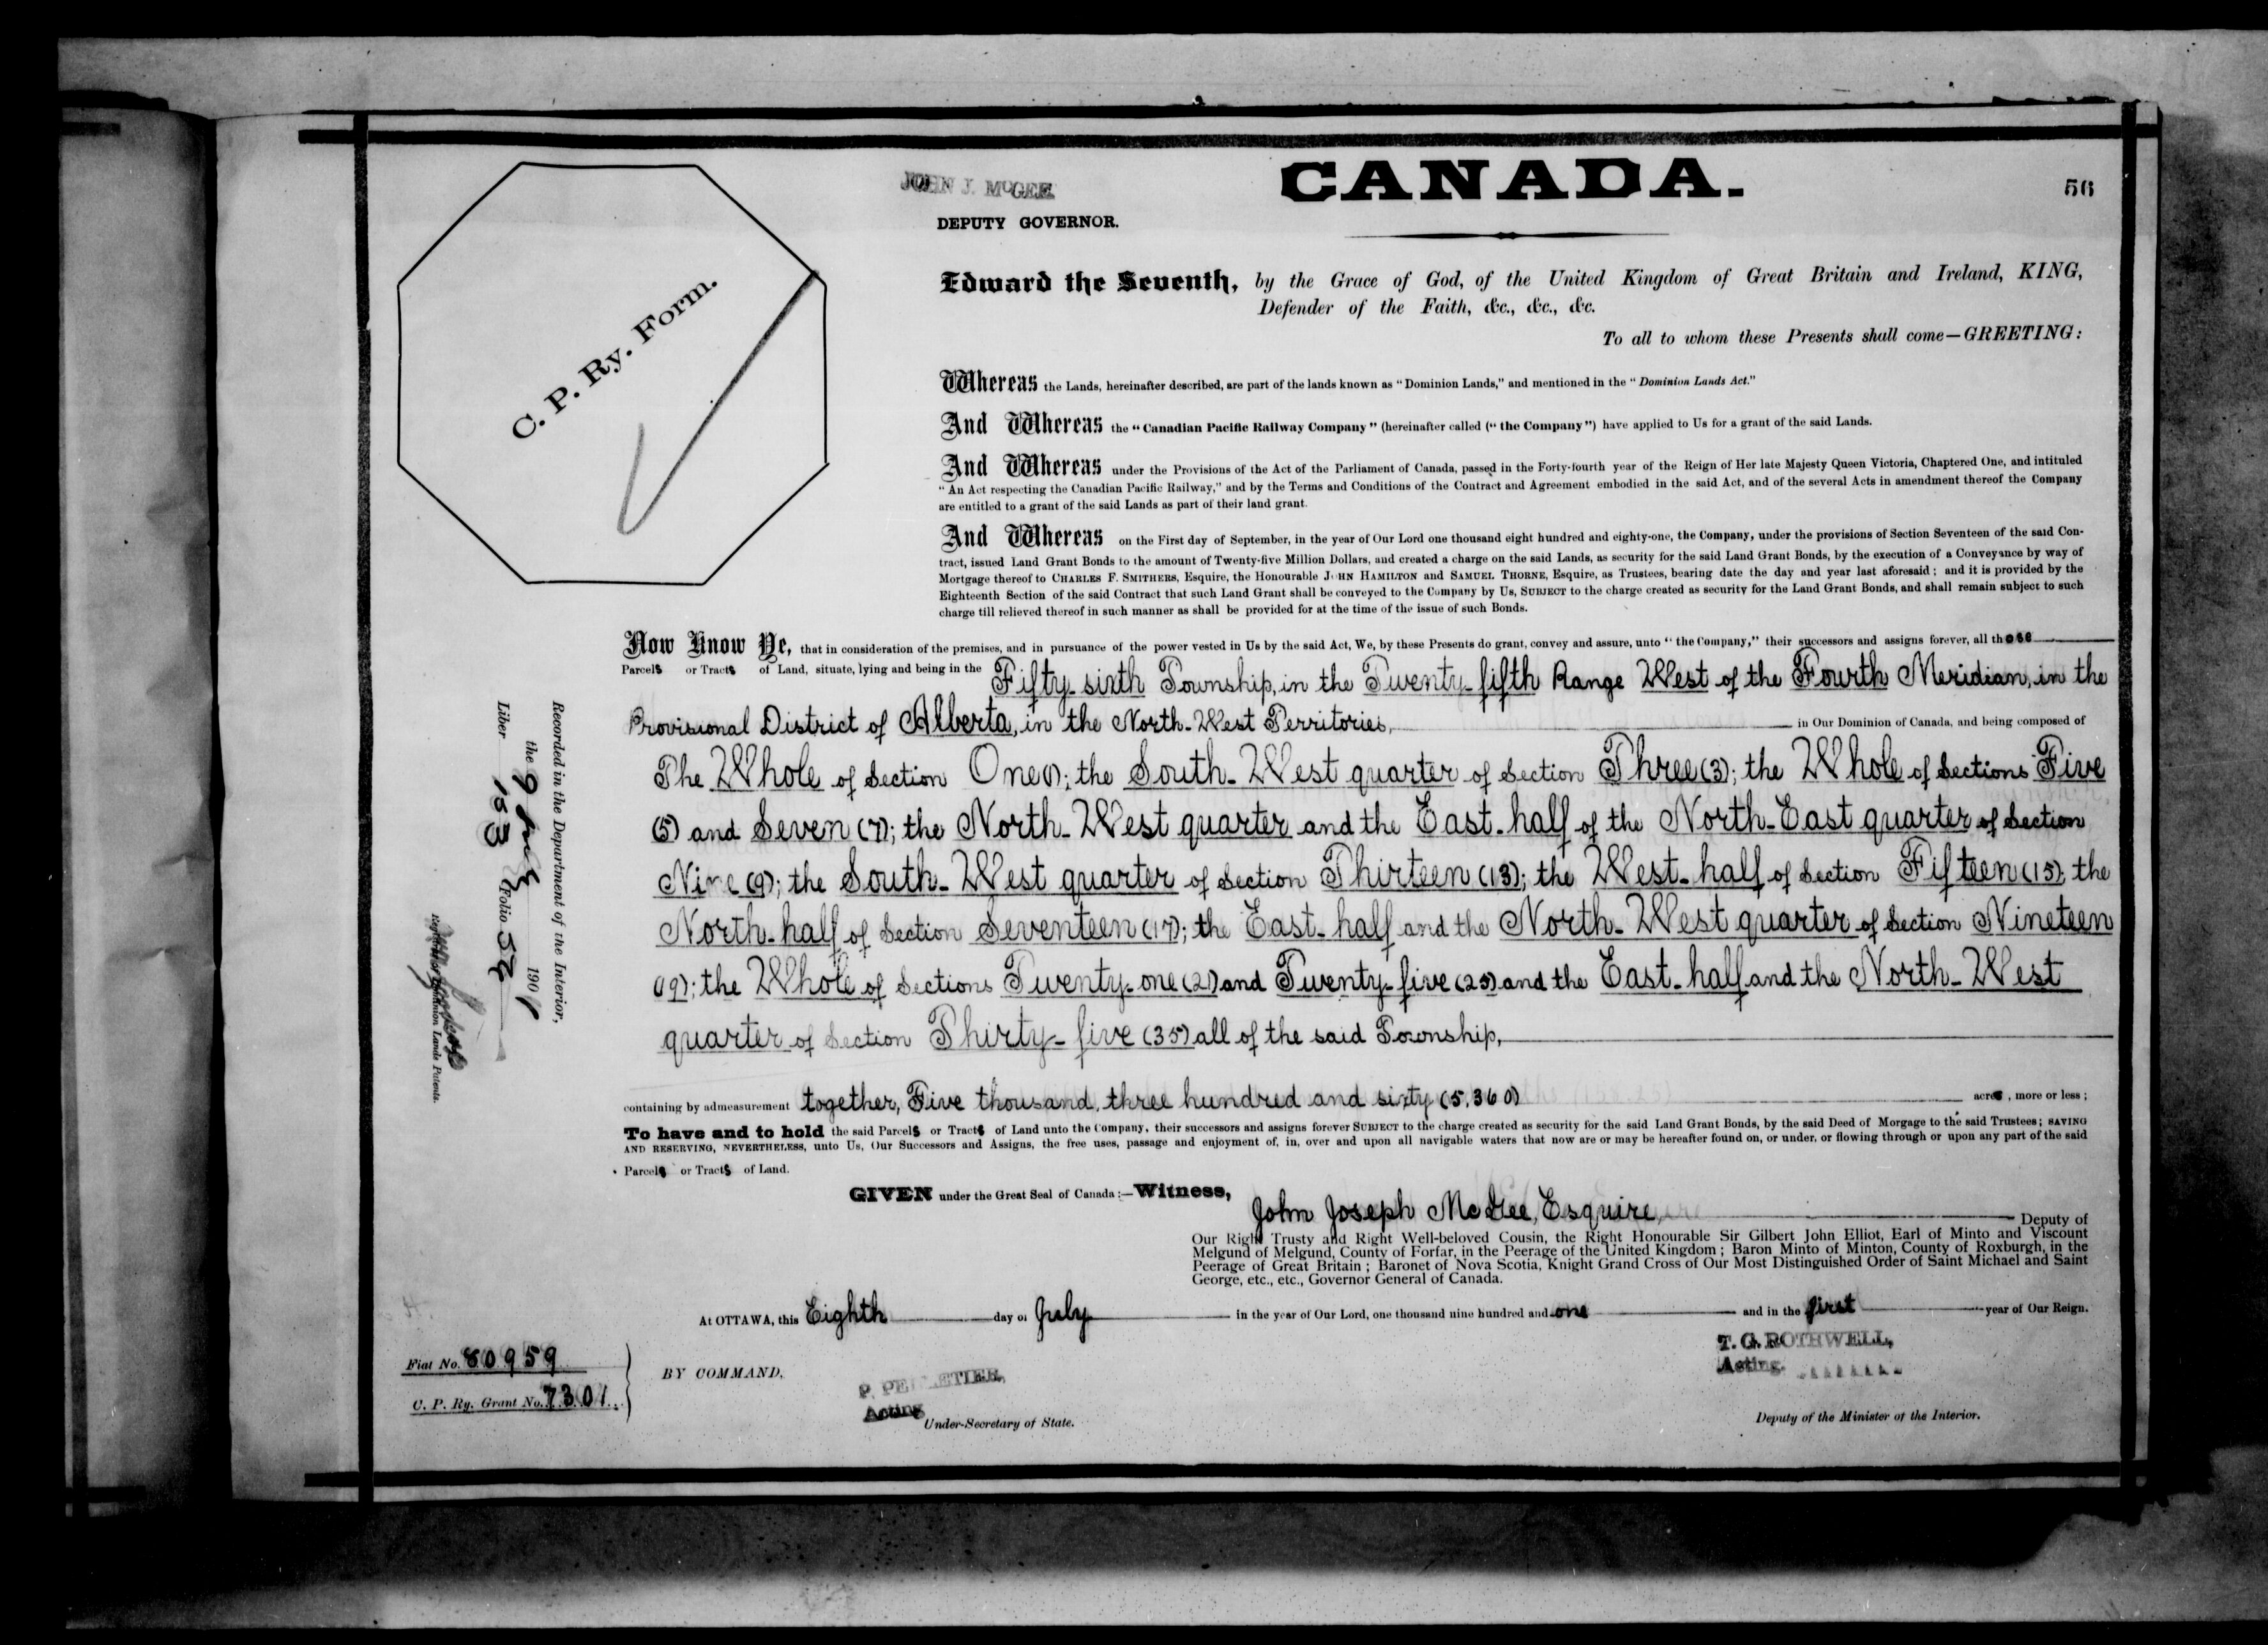 JOHN J. McGEE
DEPUTY GOVERNOR.
CANADA.
56
C. P. Ry. Form.
Edward the Seventh, by the Grace of God, of the United Kingdom of Great Britain and Ireland, KING,
Defender of the Faith, &c., &c., &c.
To all to whom these Presents shall come—GREETING:
Whereas the Lands, hereinafter described, are part of the lands known as "Dominion Lands," and mentioned in the "Dominion Lands Act."
And Whereas the "Canadian Pacific Railway Company" (hereinafter called ("the Company") have applied to Us for a grant of the said Lands.
And Whereas under the Provisions of the Act of the Parliament of Canada, passed in the Forty-fourth year of the Reign of Her late Majesty Queen Victoria, Chaptered One, and intituled
"An Act respecting the Canadian Pacific Railway," and by the Terms and Conditions of the Contract and Agreement embodied in the said Act, and of the several Acts in amendment thereof the Company
are entitled to a grant of the said Lands as part of their land grant.
And Whereas on the First day of September, in the year of Our Lord one thousand eight hundred and eighty-one, the Company, under the provisions of Section Seventeen of the said Con-
tract, issued Land Grant Bonds to the amount of Twenty-five Million Dollars, and created a charge on the said Lands, as security for the said Land Grant Bonds, by the execution of a Conveyance by way of
Mortgage thereof to CHARLES F. SMITHERS, Esquire, the Honourable JOHN HAMILTON and SAMUEL THORNE, Esquire, as Trustees, bearing date the day and year last aforesaid; and it is provided by the
Eighteenth Section of the said Contract that such Land Grant shall be conveyed to the Company by Us, SUBJECT to the charge created as security for the Land Grant Bonds, and shall remain subject to such
charge till relieved thereof in such manner as shall be provided for at the time of the issue of such Bonds.
Now Know Ye, that in consideration of the premises, and in pursuance of the power vested in Us by the said Act, We, by these Presents do grant, convey and assure, unto "the Company," their successors and assigns forever, all those
Parcels or Tracts of Land, situate, lying and being in the Fifty-sixth Township, in the Twenty-fifth Range West of the Fourth Meridian, in the
Provisional District of Alberta, in the North-West Territories, in Our Dominion of Canada, and being composed of
The Whole of Section One (1); the South-West quarter of Section Three (3); the Whole of Sections Five
(5) and Seven (7); the North-West quarter and the East-half of the North-East quarter of Section
Nine (9); the South-West quarter of Section Thirteen (13); the West-half of Section Fifteen (15); the
North-half of Section Seventeen (17); the East-half and the North-West quarter of Section Nineteen
(19); the Whole of Sections Twenty-one (21) and Twenty-five (25) and the East-half and the North-West
quarter of Section Thirty-five (35) all of the said Township,
containing by admeasurement together, Five thousand, three hundred and sixty (5,360) acres, more or less;
To have and to hold the said Parcels or Tracts of Land unto the Company, their successors and assigns forever SUBJECT to the charge created as security for the said Land Grant Bonds, by the said Deed of Morgage to the said Trustees; SAVING
AND RESERVING, NEVERTHELESS, unto Us, Our Successors and Assigns, the free uses, passage and enjoyment of, in, over and upon all navigable waters that now are or may be hereafter found on, or under, or flowing through or upon any part of the said
Parcels or Tracts of Land.
GIVEN under the Great Seal of Canada:—Witness,
John Joseph McGee, Esquire, Deputy of
Our Right Trusty and Right Well-beloved Cousin, the Right Honourable Sir Gilbert John Elliot, Earl of Minto and Viscount
Melgund of Melgund, County of Forfar, in the Peerage of the United Kingdom; Baron Minto of Minton, County of Roxburgh, in the
Peerage of Great Britain; Baronet of Nova Scotia, Knight Grand Cross of Our Most Distinguished Order of Saint Michael and Saint
George, etc., etc., Governor General of Canada.
At OTTAWA, this Eighth day of July in the year of Our Lord, one thousand nine hundred and one and in the first year of Our Reign.
T. G. ROTHWELL,
Acting
Deputy of the Minister of the Interior.
BY COMMAND,
P. PELLETIER,
Acting
Under-Secretary of State.
Fiat No. 80959
C. P. Ry. Grant No. 7301
Recorded in the Department of the Interior,
the 9 July 1901
Liber 153 Folio 56
Registrar Dominion Lands Patents.